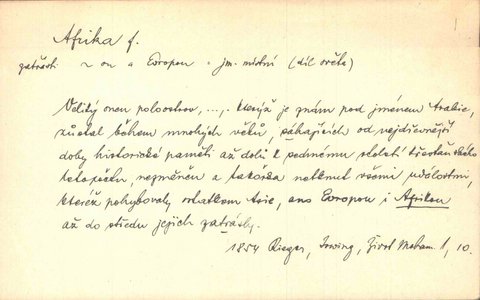 Afrika f.
zatřásti ~ ou a Evropou • jm. místní (díl světa)
Veliký onen poloostrov, ..., kterýž je znám pod jménem Arabie,
zůstal během mnohých věků, sáhajících od nejdřevnější
doby historické paměti až dolů k sedmému století křesťanského
letopočtu, nezměněn a takořka netknut všemi událostmi,
kteréž pohybovaly ostatkem Asie, ano Evropou i Afrikou
až do středu jejich zatřásly.
1854 Rieger, Irwing, Život Moham. 1, 10.